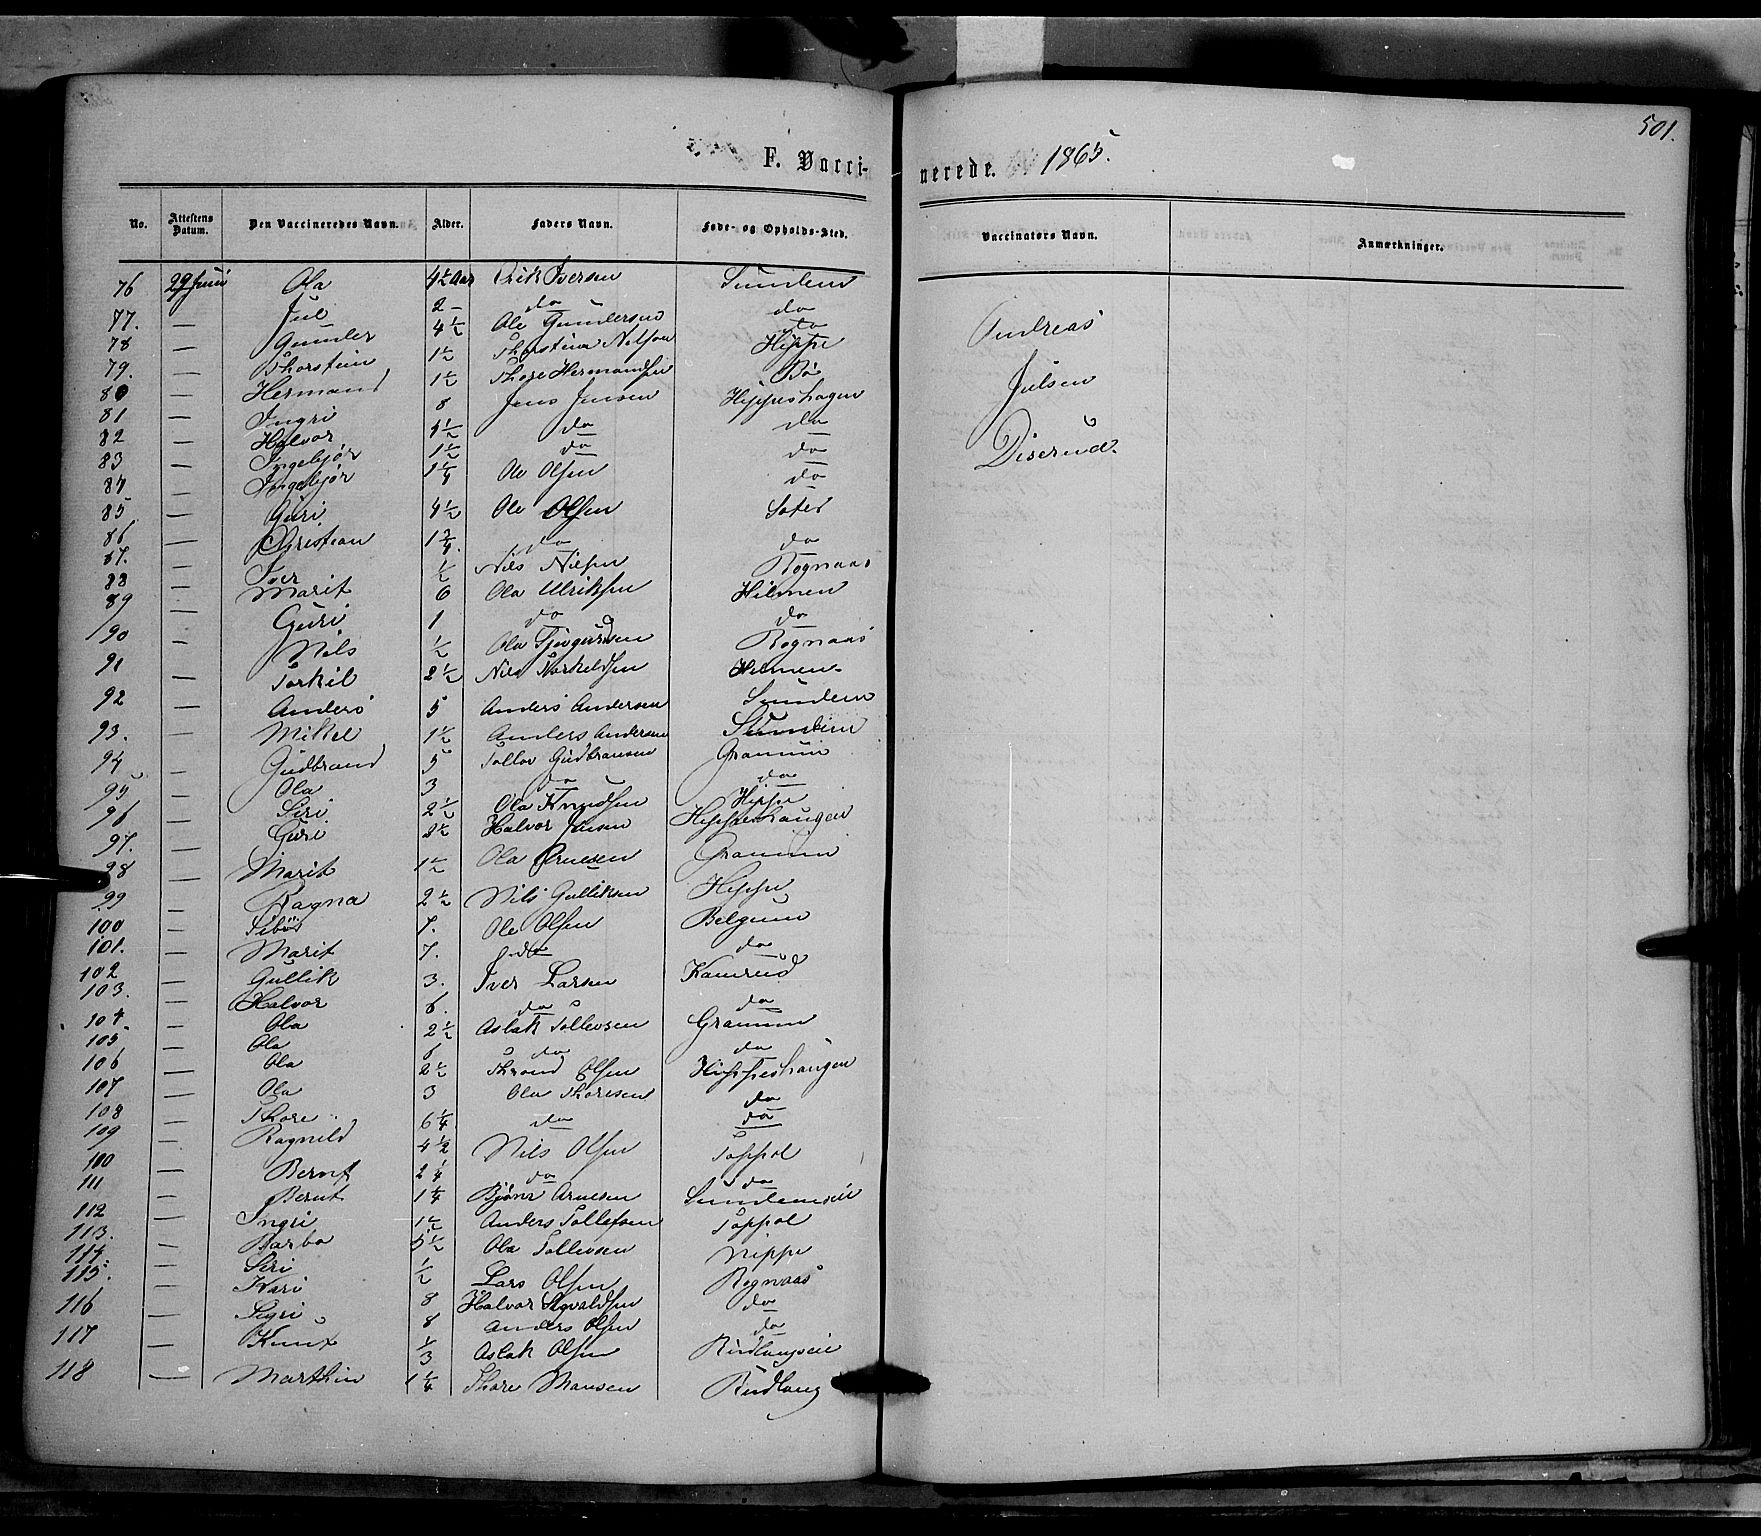 501.
F. Vacci-nerede. 1865.
No. Attestens Datum. Den Vaccineredes Navn. Alder. Faders Navn. Føde- og Opholds-Sted. Vaccinators Navn. Anmærkninger.
76 29 Juni Ola 4½ Aar Erik Iversen Sundem
77. — Jul 2 — do do
78 — Gunder 4½ Ole Gundersen do
79. — Thorstein 1½ Thorstein Nilsen Hippe
80 — Hermand 1½ Thore Hermandsen Bö
81 — Ingri 8 Jens Jensen Hippeshagen
82 — Halvor 5½ do do
83 — Ingebjör 1½ do do
84 — Ingebjör 1¼ Ole Olsen do
85 — Guri 4½ Ole Olsen
86 — Christian 1¾ do do
87. — Iver ½ Nils Nilsen Rognaas
88 — Marit 6 Ola Ulriksen Hilmen
89 — Guri 1 do do
90 — Nils ½ Ola Rognaas
91 — Torkil 2½ Nils Torkeldsen Hilmen
92 — Anders 5 Anders Andersen Sundem
93. — Mikkel 1½ Anders Andersen Sundem
94 — Gudbrand 5 Tollov Gudbransen Gramum
95 — Ola 3 do do
96 — Siri 2½ Ola Knudsen Hippe
97. — Guri 2½ Halvor Jensen Hippeshaugen
98 — Marit 1½ Ola Arnesen Gramum
99 — Ragna 2½ Nils Gulliksen Hippe
100 — 7. Ole Olsen Belgum
101. — Marit 7. do do
102 — Gullik 3. Iver Larsen Kamrud
103. — Halvor 6. do do
104 — Ola 2½ Aslak Tollevsen Gramum
105 — Ola 6 do do
106 — Ola 2½ Thrond Olsen Hippeshaugen
107 — Ola 3 Ola Thoresen do
108 — Thore 6¼ do do
109 — Ragnild 4½ Nils Olsen Toppol
110 — Bernt 2¼ do do
111 — Bernt 1¼ Bjönr Arnesen Sundemseie
112 — Ingri 1½ Anders Tollefsen Toppol
113. — Barbo 5½ Ola Tollevsen Hippe
114. — Siri ½ Lars Olsen Rognaas
115. — Kari 8 Halvor Sigvaldsen do
116 — Sigri 8 Anders Olsen do
117 — Knut ⅓ Aslak Olsen Rudlangseie
118 — Marthin 1¼ Thore Hansen Rudlang
Andreas
Julsen
Diserud.